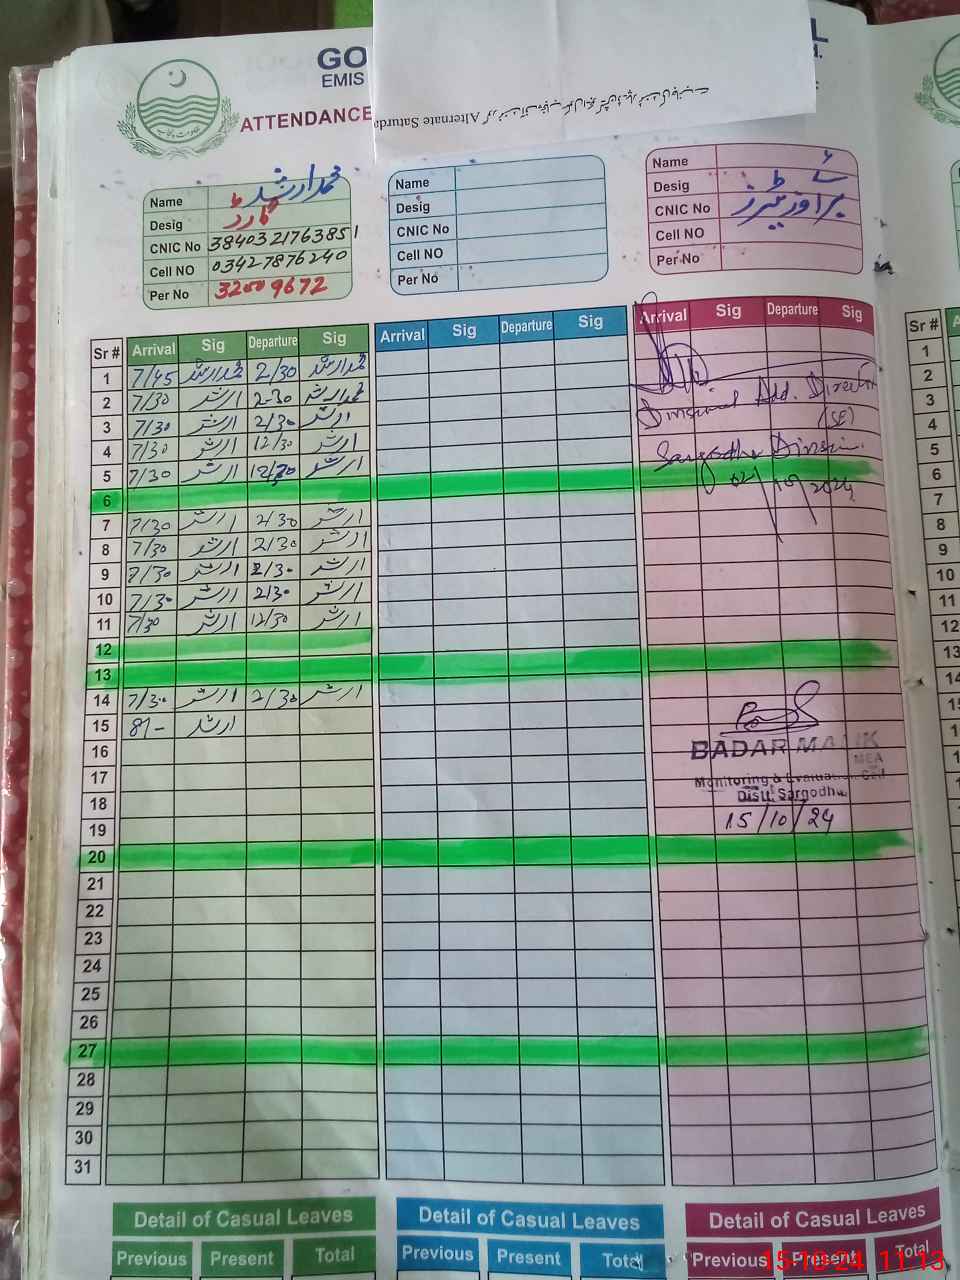 GO
EMIS
ATTENDANCE
L
حکومت پنجاب
Alternate Saturda
Name محمد ارشد
Desig گارڈ
CNIC No 3840321763851
Cell NO 03427876240
Per No 32009672
Name
Desig
CNIC No
Cell NO
Per No
Name
Desig
CNIC No
Cell NO
Per No
برائے وزیٹرز
Sr # Arrival Sig Departure Sig Arrival Sig Departure Sig Arrival Sig Departure Sig Sr #
1 7/45 محمد ارشد 2/30 محمد ارشد 1
2 7/30 ارشد 2-30 محمد ارشد 2
3 7/30 ارشد 2/30 ارشد 3
4 7/30 ارشد 12/30 ارشد 4
5 7/30 ارشد 12/30 ارشد 5
6 6
7 7/30 ارشد 2/30 ارشد 7
8 7/30 ارشد 2/30 ارشد 8
9 7/30 ارشد 2/30 ارشد 9
10 7/30 ارشد 2/30 ارشد 10
11 7/30 ارشد 12/30 ارشد 11
12 12
13 13
14 7/30 ارشد 2/30 ارشد 14
15 8/- ارشد
16
17
18
19
20
21
22
23
24
25
26
27
28
29
30
31
Divisional Add. Director
(SE)
Sargodha Division
02/10/2024
BADAR MALIK
MEA
Monitoring & Evaluation Cell
Distt. Sargodha
15/10/24
Detail of Casual Leaves
Previous Present Total
Detail of Casual Leaves
Previous Present Total
Detail of Casual Leaves
Previous Present Total
15-10-24 11:13